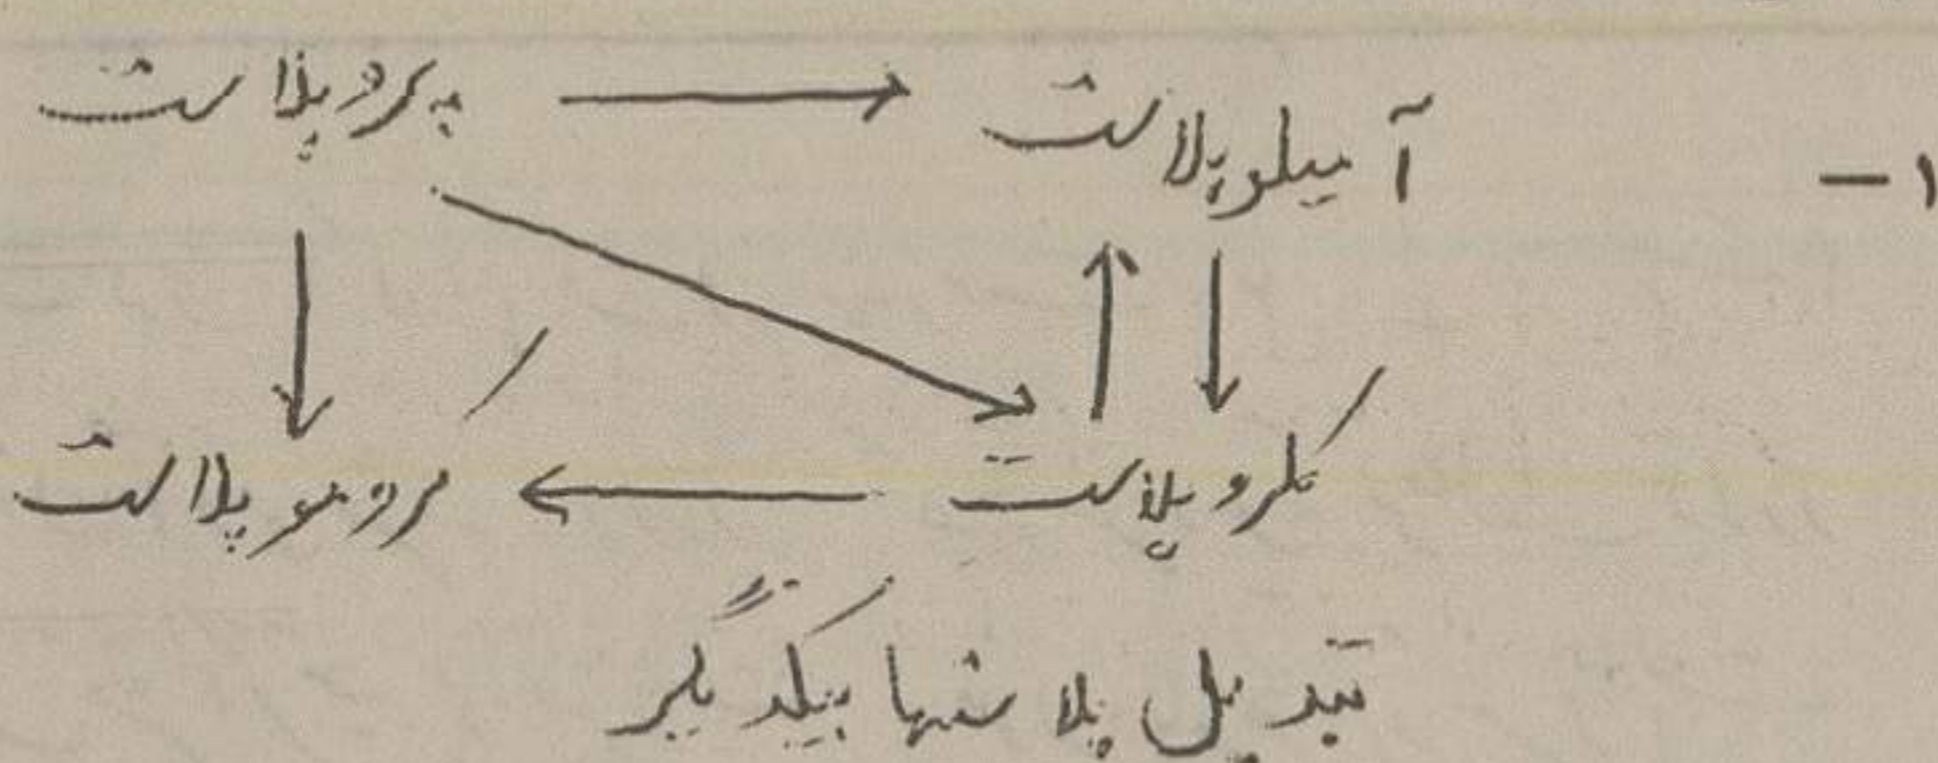 ۱- آمیلوپلاست پروپلاست
کلروپلاست کروموپلاست
تبدیل پلاستها بیکدیگر